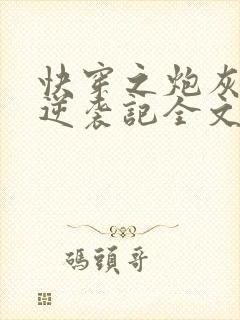 快穿之炮灰
逆袭記全文
碼頭哥